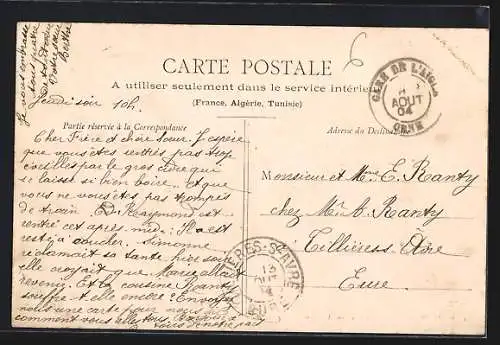 Je vous embrasse
tous quatre
Votre sœur
Berthe
CARTE POSTALE
A utiliser seulement dans le service intérieur
(France, Algérie, Tunisie)
Jeudi soir 10h.
Partie réservée à la Correspondance
Adresse du Destinataire
GARE DE L'AIGLE
AOUT
04
ORNE
6
Cher Frère et chère sœur. J'espère
que vous êtes rentrés pas trop
par le gros cidre qui
se laisse si bien boire. Et que
vous ne vous êtes pas trompés
de train. Raymond est
rentré cet après midi. Il est
resté à coucher. Simonne
réclamait sa tante hier soir
elle croyait que Marie allait
revenir. Et la cousine Ranty
souffre-t-elle encore? Envoyez
nous une carte pour nous dire
comment vous allez tous.
tous de notre part
Monsieur et Mme E. Ranty
chez Mr A. Ranty
Tillières s/ Avre
Eure
ÈRES-S-AVRE
13
04
EURE